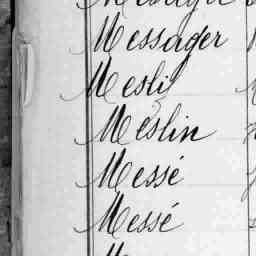 Messager
Mesli
Meslin
Messé
Messé